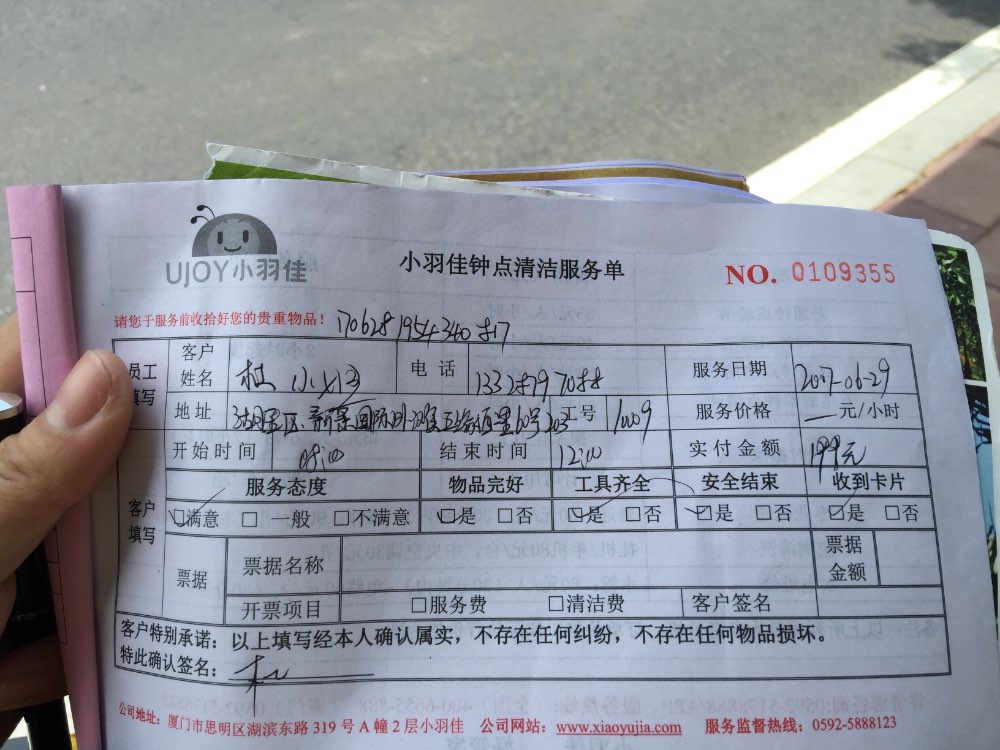 UJOY小羽佳
小羽佳钟点清洁服务单
NO. 0109355
请您于服务前收拾好您的贵重物品！
员工填写 客户姓名 杜小 电话 服务日期 2017-06-29
地址 工号 1009 服务价格 元/小时
开始时间 08:00 结束时间 12:00 实付金额 199元
客户填写 服务态度 物品完好 工具齐全 安全结束 收到卡片
□满意 □一般 □不满意 □是 □否 □是 □否 □是 □否 □是 □否
票据 票据名称 票据金额
开票项目 □服务费 □清洁费 客户签名
客户特别承诺：以上填写经本人确认属实，不存在任何纠纷，不存在任何物品损坏。
特此确认签名：杜
公司地址：厦门市思明区湖滨东路 319 号 A 幢 2 层小羽佳 公司网站：www.xiaoyujia.com 服务监督热线：0592-5888123